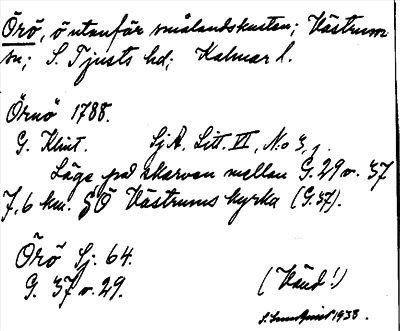 Örö, ö utanför smålandskusten; Västrum
sn; S. Tjusts hd; Kalmar l.
Örnö 1788.
G. Klint. SjA. Litt. VI, No 3, j.
Läge på skarven mellan G. 29 o. 37
7,6 km. SÖ Västrums kyrka (G. 37).
Örö Sj. 64.
G. 37 o. 29.
(Vänd!)
S. Lundquist 1938.